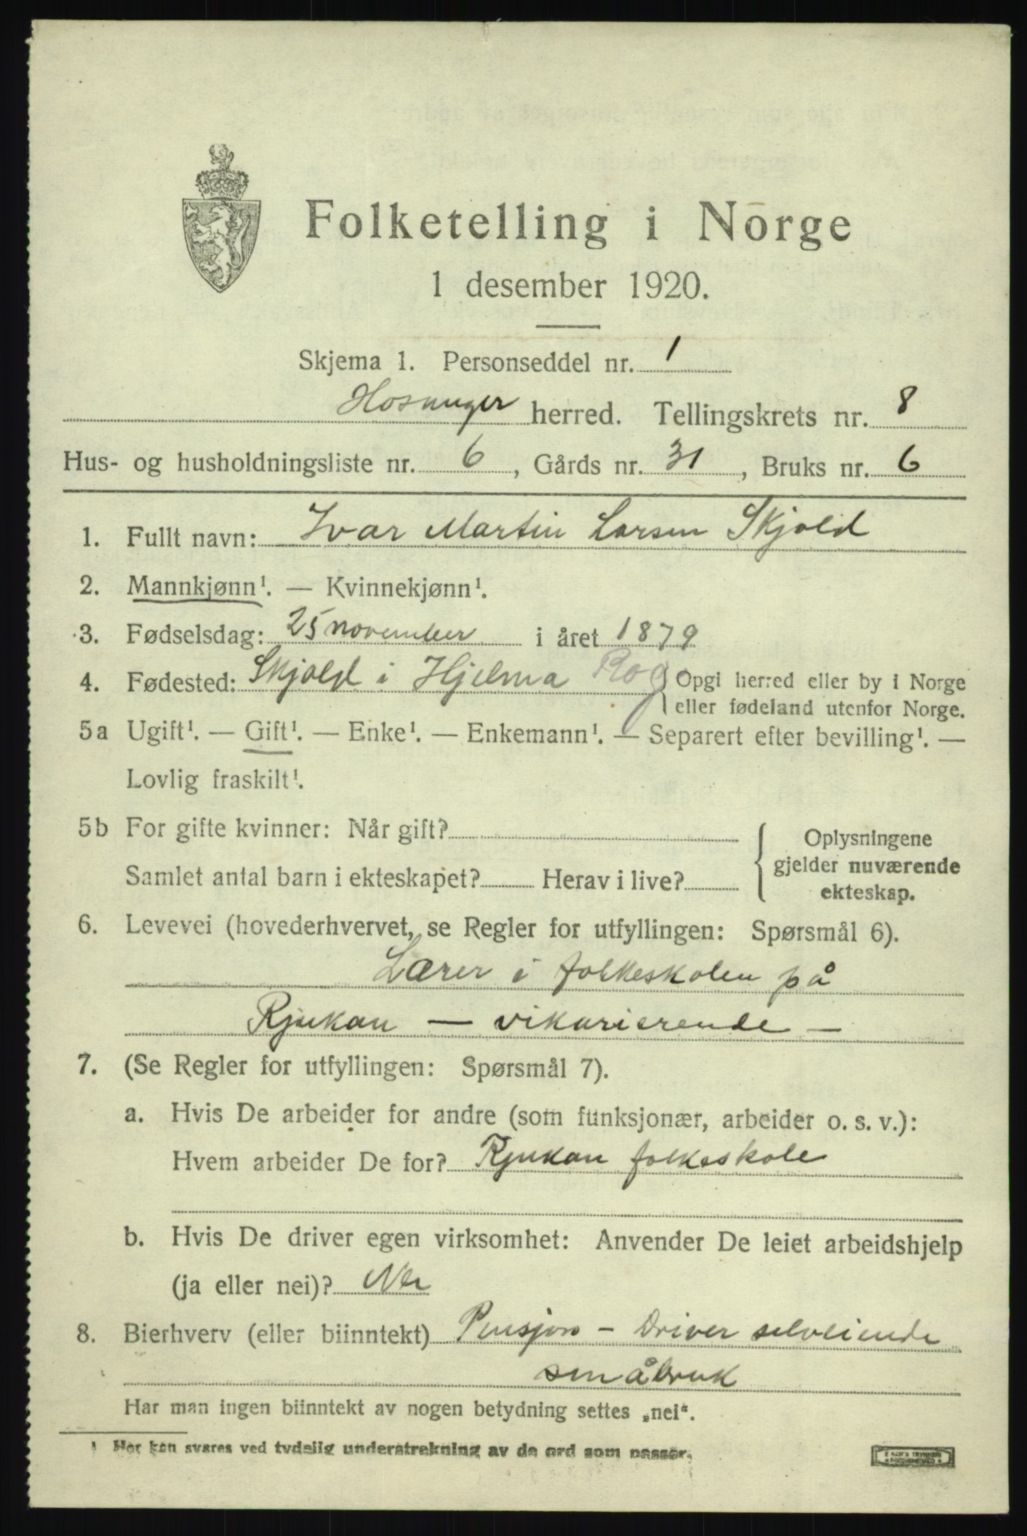 Folketelling i Norge
1 desember 1920.
Skjema 1. Personseddel nr. 1
Hosanger herred. Tellingskrets nr. 8
Hus- og husholdningsliste nr. 6, Gårds nr. 31, Bruks nr. 6
1. Fullt navn: Ivar Martin Larsen Skjold
2. Mannkjønn¹. — Kvinnekjønn¹.
3. Fødselsdag: 25 november i året 1879
4. Fødested: Skjold i Hjelma Rog { Opgi herred eller by i Norge
eller fødeland utenfor Norge.
5a Ugift¹. — Gift¹. — Enke¹. — Enkemann¹. — Separert efter bevilling¹. —
Lovlig fraskilt¹.
5b For gifte kvinner: Når gift?
Samlet antal barn i ekteskapet? Herav i live?
{ Oplysningene
gjelder nuværende
ekteskap.
6. Levevei (hovederhvervet, se Regler for utfyllingen: Spørsmål 6).
Lærer i folkeskolen på
Rjukan — vikarierende —
7. (Se Regler for utfyllingen: Spørsmål 7).
a. Hvis De arbeider for andre (som funksjonær, arbeider o. s. v.):
Hvem arbeider De for? Rjukan folkeskole
b. Hvis De driver egen virksomhet: Anvender De leiet arbeidshjelp
(ja eller nei)? Nei
8. Bierhverv (eller biinntekt) Pensjon – Driver selveiende
småbruk
Har man ingen biinntekt av nogen betydning settes „nei“.
¹ Her kan svares ved tydelig understrekning av de ord som passer.